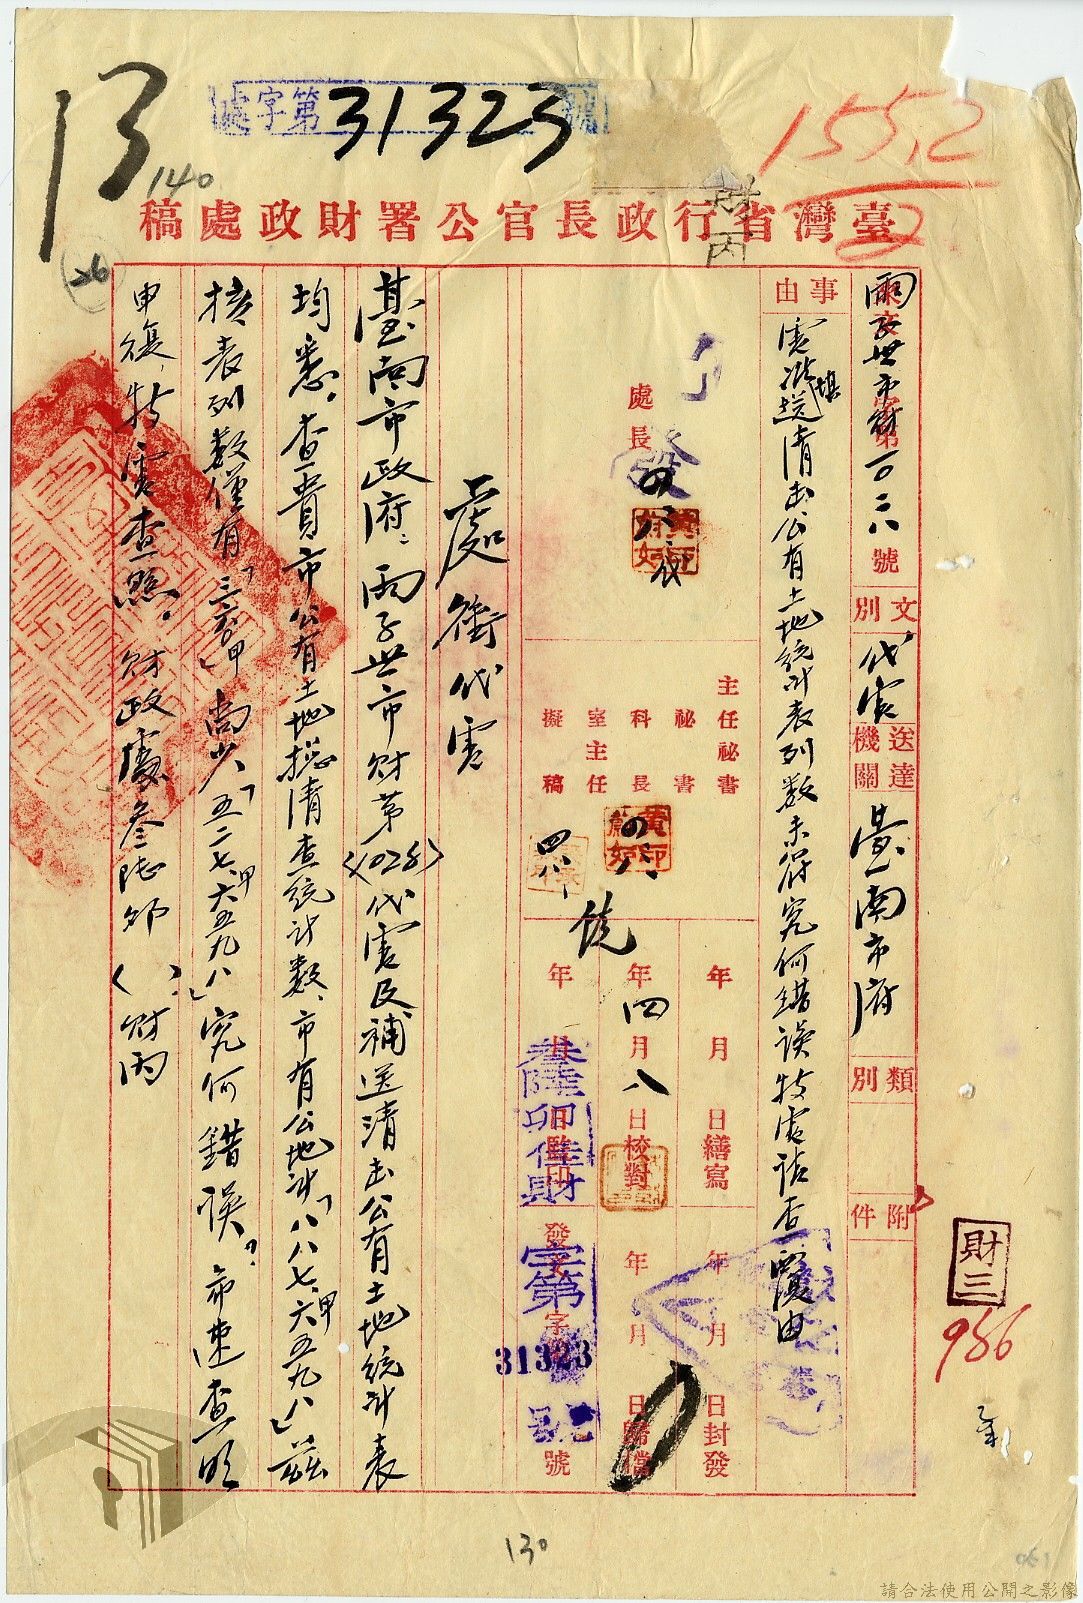 處字第31323號
13
140
26
155.2
財丙
臺灣省行政長官公署財政處稿
來文 字第 號
雨子世市財 一〇二八
文別
代電
送達機關
臺南市府
類別
附件
事由
電准填送清出公有土地統計表列數未符究何錯誤特電請查覆由
處長
發
主任秘書
秘書
科長
室主任
擬稿
四八
年 月 日繕寫
年四月八日校對
年 月 日監印
年 月 日封發
年 月 日歸檔
發文 字第 號
叁陸卯佳財
字第
31323
號
處銜代電
臺南市政府：雨子世市財第(1028)代電及補送清出公有土地統計表
均悉。查貴市公有土地總清查統計數、市有公地計「八八七、六五九八甲」茲
核表列數僅有「三六〇甲」尚少「五二七、六五九八甲」究何錯誤？希速查明
申復，特電查照。財政處叁陸卯( )財丙
財三
986
130
061
請合法使用公開之影像